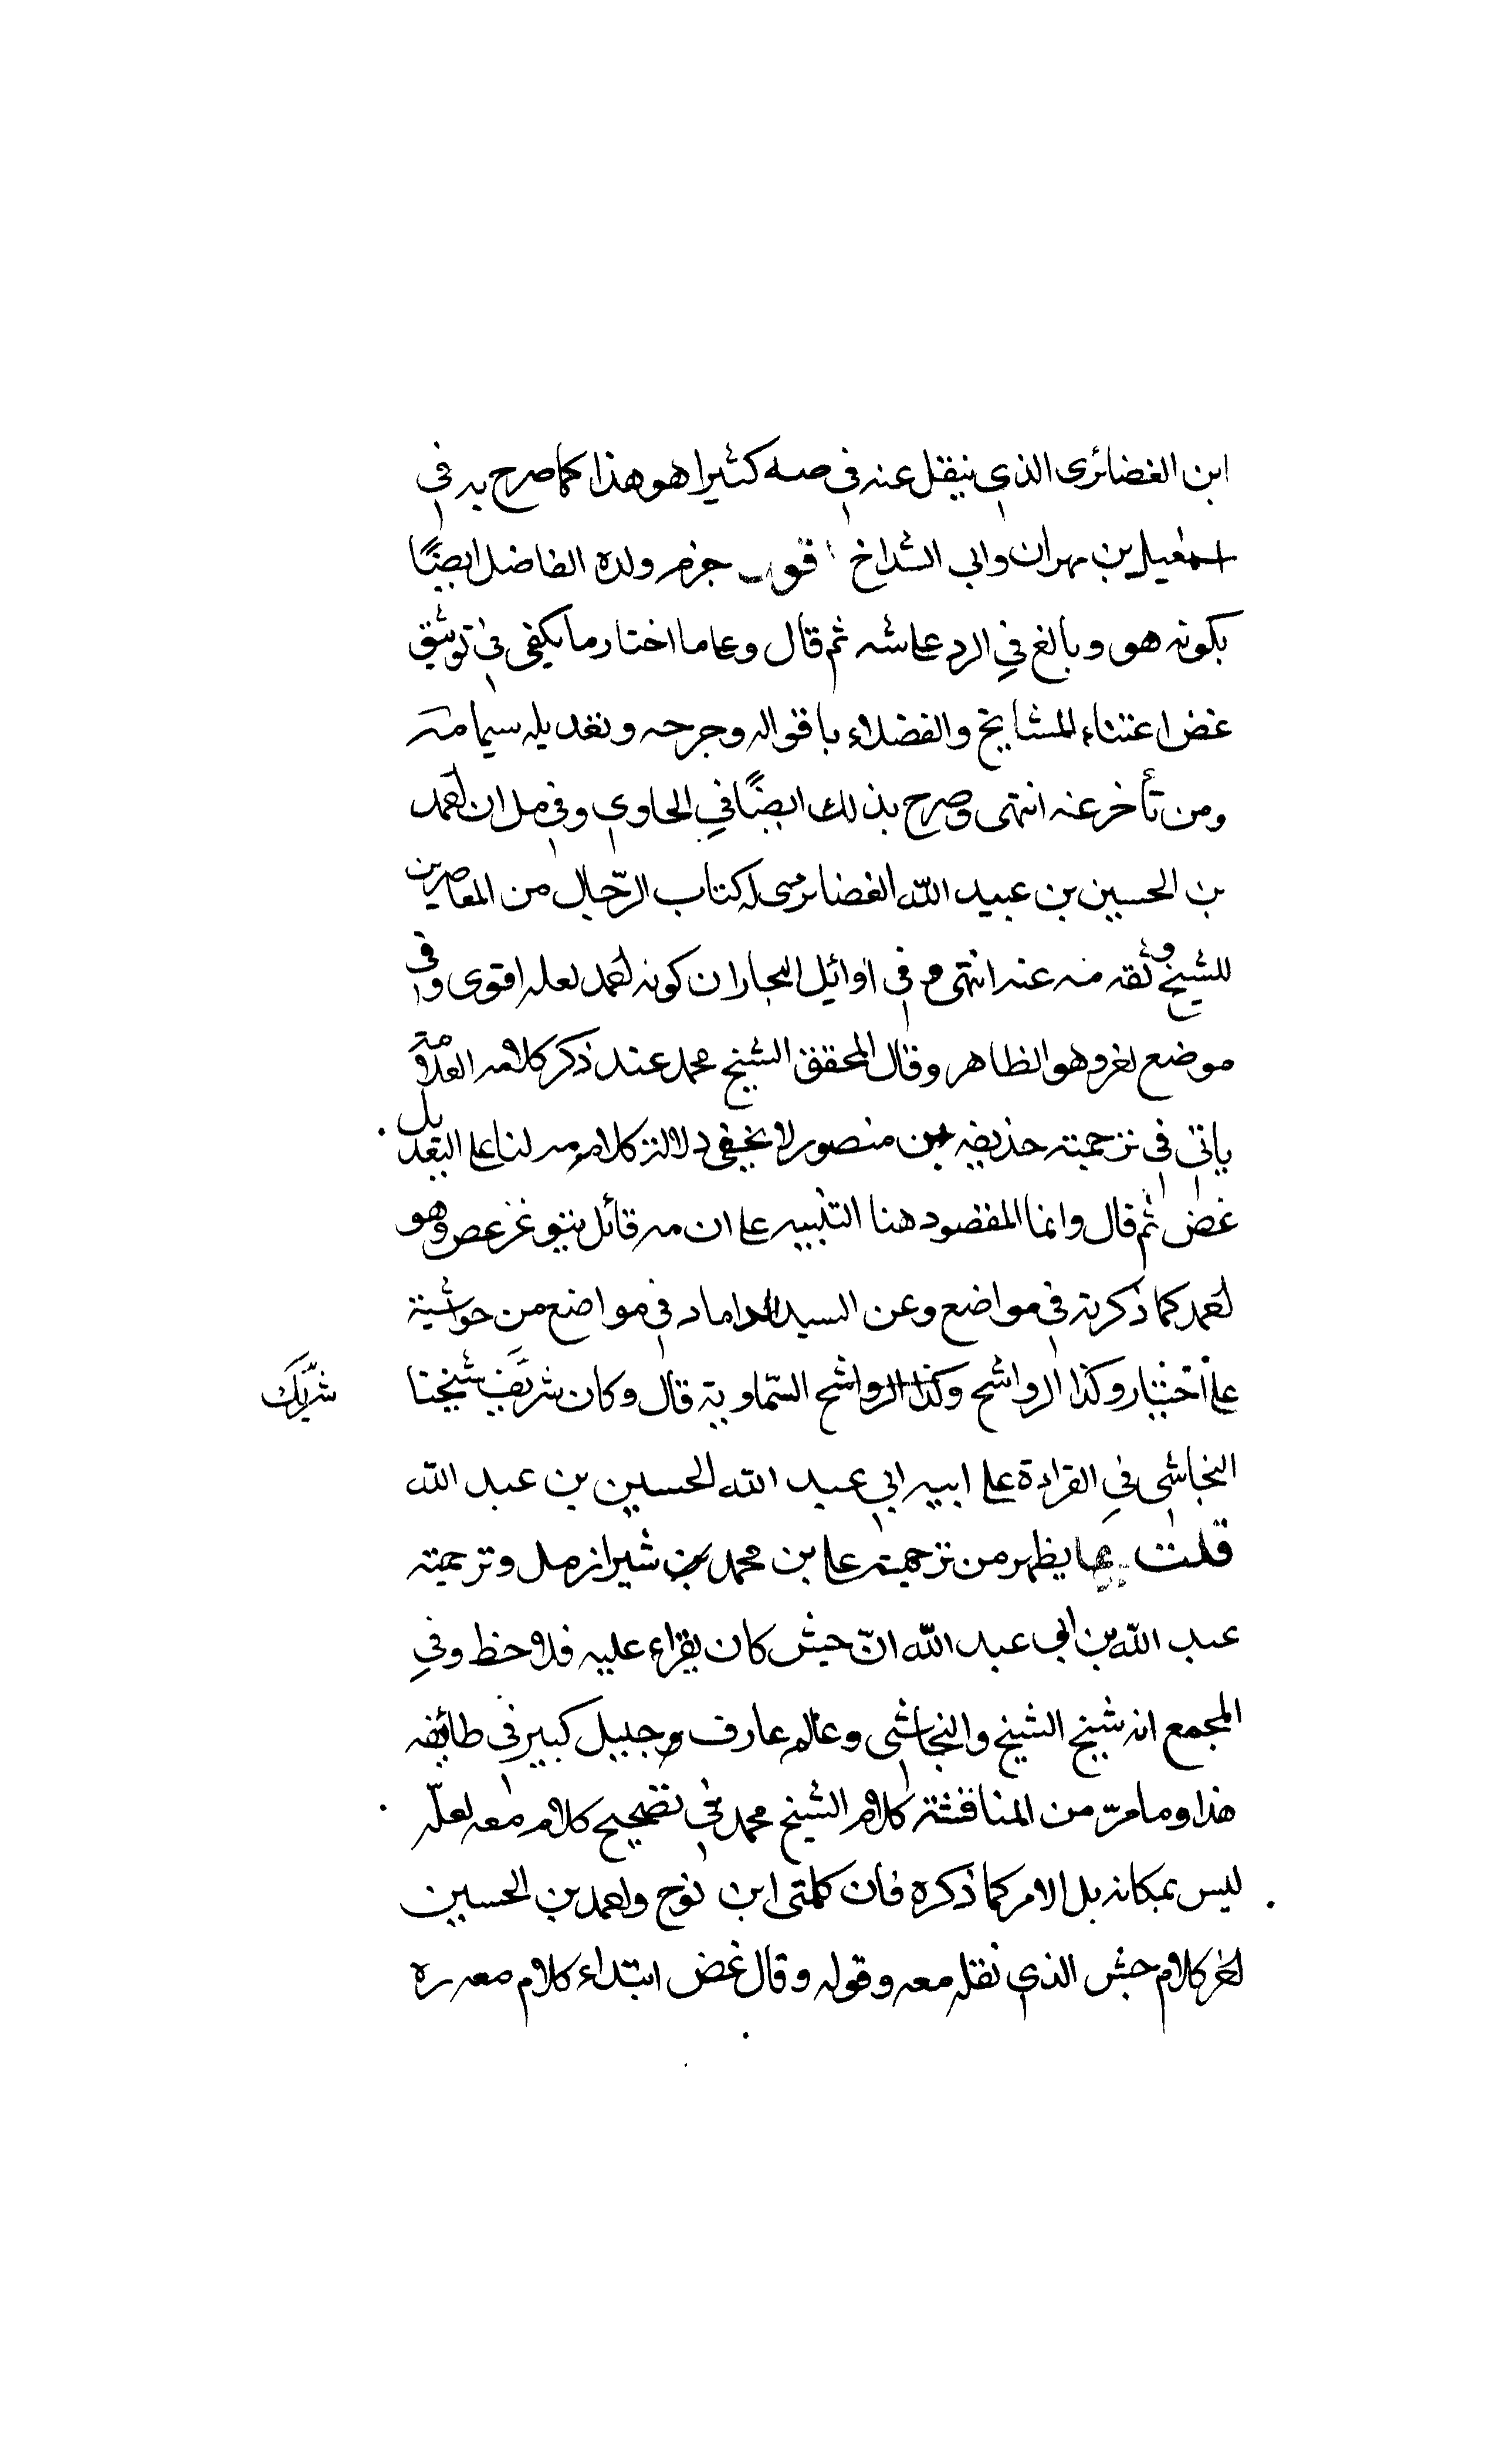 ابن الغضائرى الذي ينقل عنه في صه كثيرا هو هذا كما صرح به في
اسمعيل بن مهران وابي الشداخ اقول جزم ولده الفاضل ايضًا
بكونه هو وبالغ في الرد على شه ثم قال وعلى ما اختار ما يكفي في توثيق
غض اعتناء المشايخ والفضلاء باقواله وجرحه وتعديله سيما مه
ومن تأخر عنه انتهى وصرح بذلك ايضًا في الحاوي وفي مل ان احمد
بن الحسين بن عبيد الله الغضائرى له كتاب الرّجال من المعاصرين
للشيخ وثقه مه عنه انتهى وفي اوائل البحار ان كونه احمد لعله اقوى وفي
موضع اخر وهو الظاهر وقال المحقق الشيخ محمد عند ذكر كلامه العلامة
ياتى في ترجمته حذيفه بن منصور لا يخفى دلالة كلام مه لنا على التعديل
غض ثم قال وانما المقصود هنا التنبيه على ان مه قائل وهو
احمد كما ذكرته في مواضع وعن السيد الداماد في مواضع من حواشيه
على اختيار وكذا الرواشح وكذا الرواشح السّماوية قال وكان شريف شيخنا
شريك
النجاشى في القراءة على ابيه ابي عبد الله الحسين بن عبد الله
قلت مما يظهر من ترجمته على بن محمد بن شيراز مل وترجمته
عبد الله بن ابى عبد الله انّ جش كان يقراء عليه فلاحظ وفي
المجمع انه شيخ الشيخ والنجاشى وعالم عارف وجليل كبير في طائفه
هذا وما مرّ من المناقشة كلام الشيخ محمد في تصحيح كلام معه لعلّه
ليس بمكانه بل الامر كما ذكره فان كلمتى ابن نوح واحمد بن الحسين
اخر كلام جش الذي نقله معه وقوله وقال غض ابتداء كلام معه ره